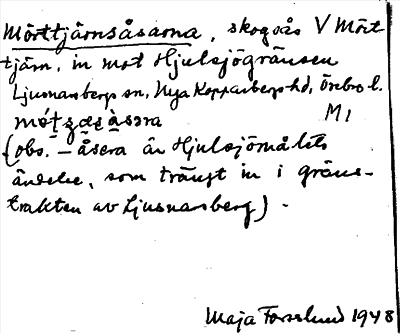 Mörttjärnsåsarna, skogsås V Mört
tjärn, in mot Hjulsjögränsen
Ljusnarsbergs sn, Nya Kopparbergs hd, Örebro l.
M1
(obs. – åsera är Hjulsjömålets
ändelse, som trängt in i gräns-
trakten av Ljusnarsberg).
Maja Forsslund 1948